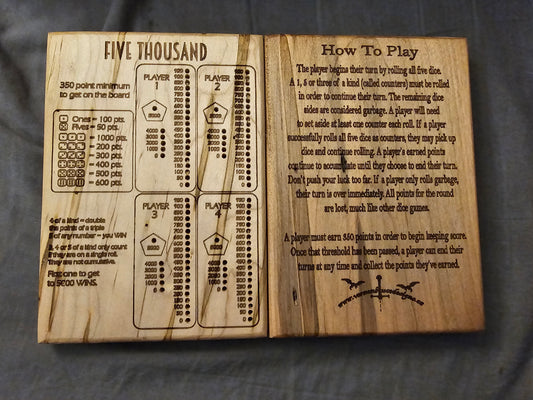 FIVE THOUSAND
350 point minimum
to get on the board
Ones = 100 pts.
Fives = 50 pts.
= 1000 pts.
= 200 pts.
= 300 pts.
= 400 pts.
= 500 pts.
= 600 pts.
4 of a kind = double
the points of a triple
5 of any number = you WIN
3, 4 or 5 of a kind only count
if they are on a single roll.
They are not cumulative.
First one to get
to 5000 WINS.
PLAYER
1
5000
4000
3000
2000
1000
PLAYER
2
5000
4000
3000
2000
1000
PLAYER
3
5000
4000
3000
2000
1000
PLAYER
4
5000
4000
3000
2000
1000
How To Play
The player begins their turn by rolling all five dice.
A 1, 5 or three of a kind (called counters) must be rolled
in order to continue their turn. The remaining dice
sides are considered garbage. A player will need
to set aside at least one counter each roll. If a player
successfully rolls all five dice as counters, they may pick up
dice and continue rolling. A player's earned points
continue to accumulate until they choose to end their turn.
Don't push your luck too far. If a player only rolls garbage,
their turn is over immediately. All points for the round
are lost, much like other dice games.
A player must earn 350 points in order to begin keeping score.
Once that threshold has been passed, a player can end their
turns at any time and collect the points they've earned.